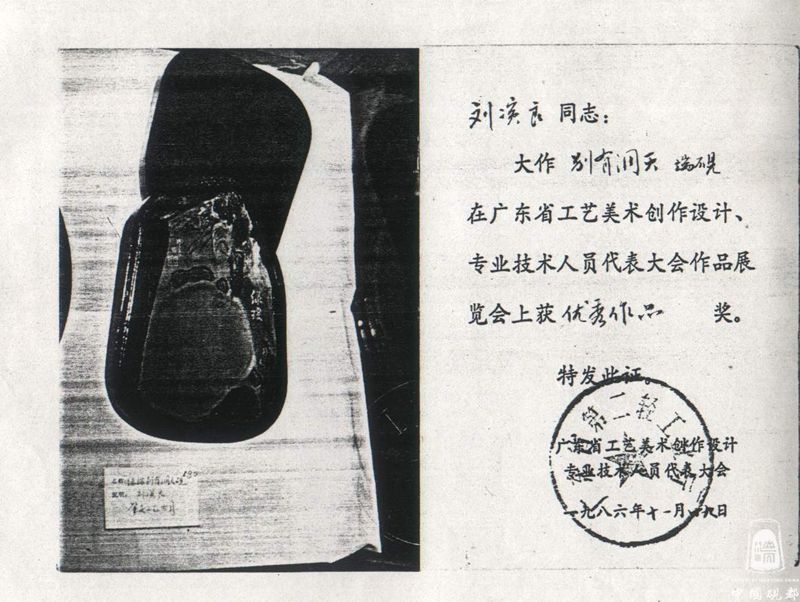 刘演良 同志:
大作 别有洞天 端砚
在广东省工艺美术创作设计、
专业技术人员代表大会作品展
览会上获 优秀作品 奖。
特发此证。
第二轻工
广东省工艺美术创作设计
专业技术人员代表大会
一九八六年十一月 日
中国砚都